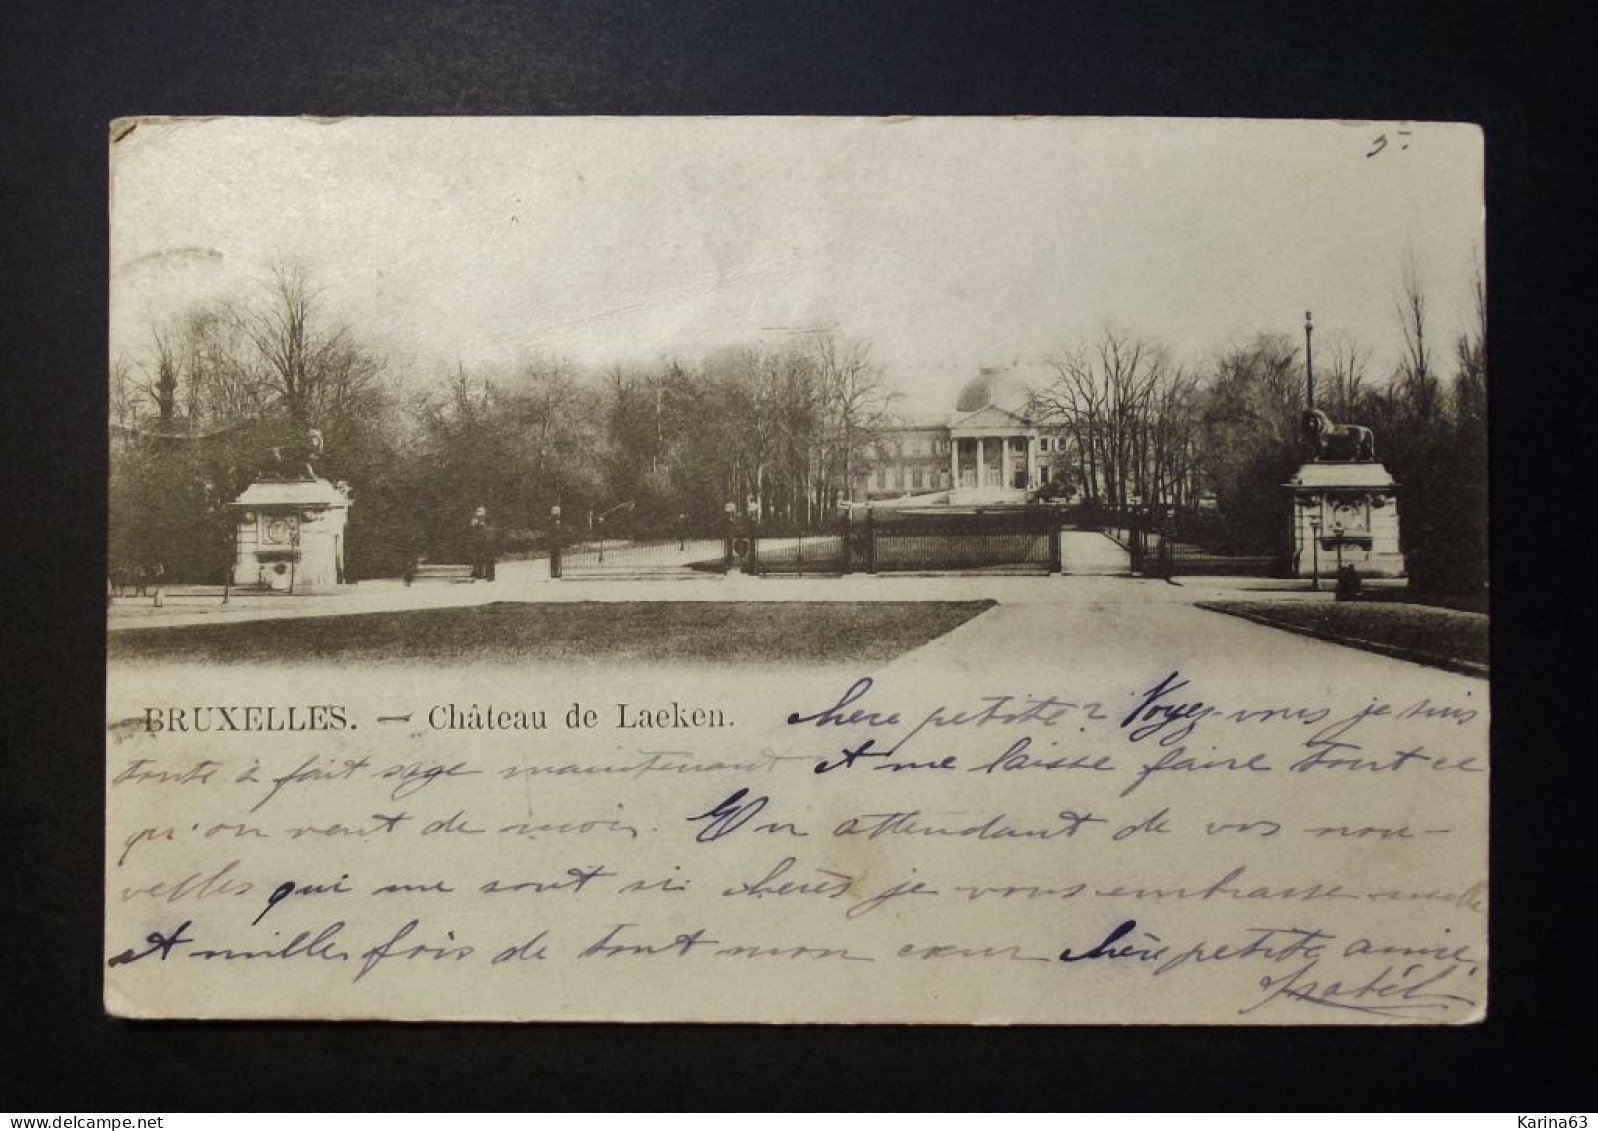 5.
BRUXELLES. — Château de Laeken.
Chère petite? Voyez-vous je suis
toute à fait sage maintenant et me laisse faire tout ce
qu'on veut de moi. En attendant de vos nou-
velles qui me sont si chères je vous embrasse mille
et milles fois de tout mon cœur chère petite amie.
Isabél
Karina63